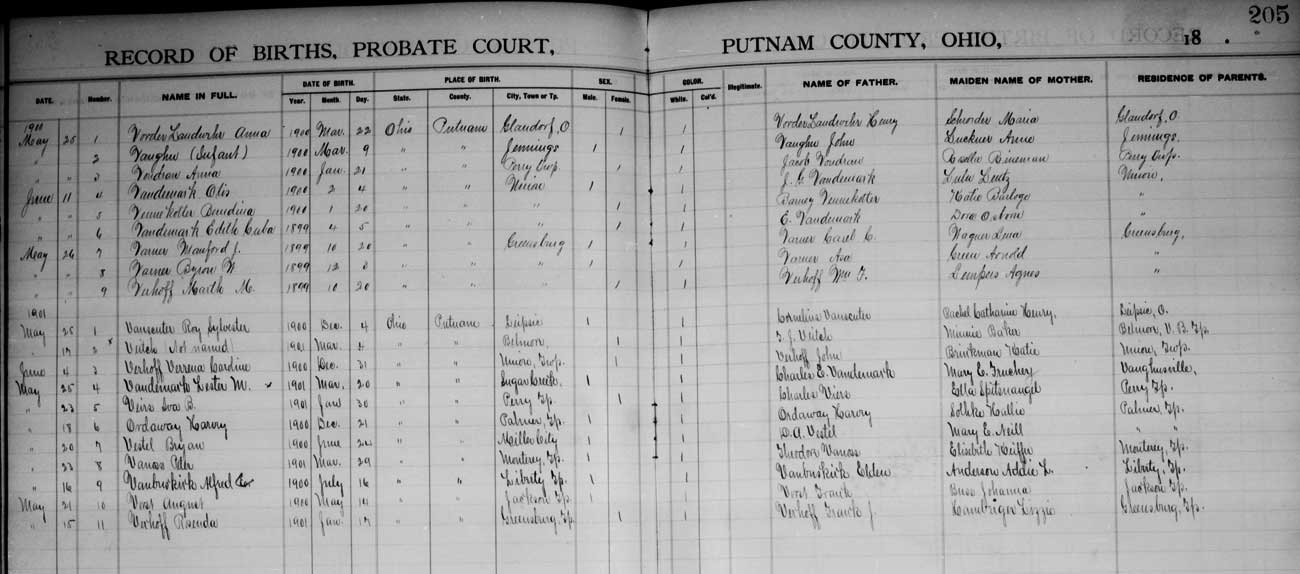 205
RECORD OF BIRTHS, PROBATE COURT, PUTNAM COUNTY, OHIO, 18 .
DATE. Number. NAME IN FULL. DATE OF BIRTH. Year. Month. Day. PLACE OF BIRTH. State. County. City, Town or Tp. SEX. Male. Female. COLOR. White. Col'd. Illegitimate. NAME OF FATHER. MAIDEN NAME OF MOTHER. RESIDENCE OF PARENTS.
1900
May 25 1 Anna 1900 Mar. 22 Ohio Putnam Glandorf, O 1 1 Henry Schroder Maria Glandorf, O
" " 2 Vaughn (Infant) 1900 Mar. 9 " " Jennings 1 1 Vaughn John Anna Jennings,
" " 3 Vondran Anna 1900 Jan. 21 " " Perry Twp. 1 1 Jacob Vondran Rosella Bineman Perry Twp.
June 11 4 Vandemark Otis 1900 2 4 " " Union 1 1 Vandemark Lula Lentz Union,
" " 5 1900 1 20 " " " 1 1 Katie "
" " 6 Vandemark Edith 1899 4 5 " " " 1 1 E. Vandemark Dora Osborn "
May 26 7 Varner Manford J. 1899 10 20 " " Greensburg 1 1 Varner Carel C. Wagner Greensburg,
" " 8 Varner Byron W. 1899 12 3 " " " 1 1 Varner Asa Green Arnold "
" " 9 Verhoff Martha M. 1899 10 20 " " 1 Verhoff Wm F. Agnes "
1901
May 25 1 Vanscuter Roy Sylvester 1900 Dec. 4 Ohio Putnam Leipsic 1 1 Cornelius Vanscuter Rachel Catharine Henry, Leipsic, O.
" 17 2 Veitch (Not named) 1901 Mar. 4 " " Belmon, 1 1 Veitch Minnie Baker Belmon, V. B. Tp.
June 4 3 Verhoff Verrena Caroline 1900 Dec. 31 " " Union, Twp. 1 1 Verhoff John Brinkman Katie Union, Twp.
May 25 4 Vandemark Lester M. 1901 Mar. 20 " " Sugar Creek, 1 1 Charles E. Vandemark Mary E. Truchey Vaughnsville,
" 23 5 Veirs Iva B. 1901 Jan 30 " " Perry Tp. 1 1 Charles Viers Ella Spitnaugel Perry Tp.
" 18 6 Ordaway Harvey 1900 Dec. 21 " " Palmer, Tp. 1 1 Ordaway Harvey Hallie Palmer, Tp.
" 20 7 Vestel Bryan 1900 June 22 " " Miller City 1 1 D. A. Vestel Mary E. Neill " "
" 23 8 Vanoss 1901 Mar. 29 " " Monterey, Tp. 1 1 Theodor Vanoss Elisabeth Monterey, Tp.
" 16 9 Vanbuskirk Alfred 1900 July 16 " " Liberty, Tp. 1 1 Vanbuskirk Elden Anderson Addie L. Liberty, Tp.
May 21 10 Vorst August 1900 May 14 " " Jackson Tp. 1 1 Vorst Frank Buss Johanna Jackson Tp.
" 15 11 Verhoff Rosenda 1901 Jan. 17 " " Greensburg, Tp. 1 1 Verhoff Frank J. Lizzie Greensburg, Tp.